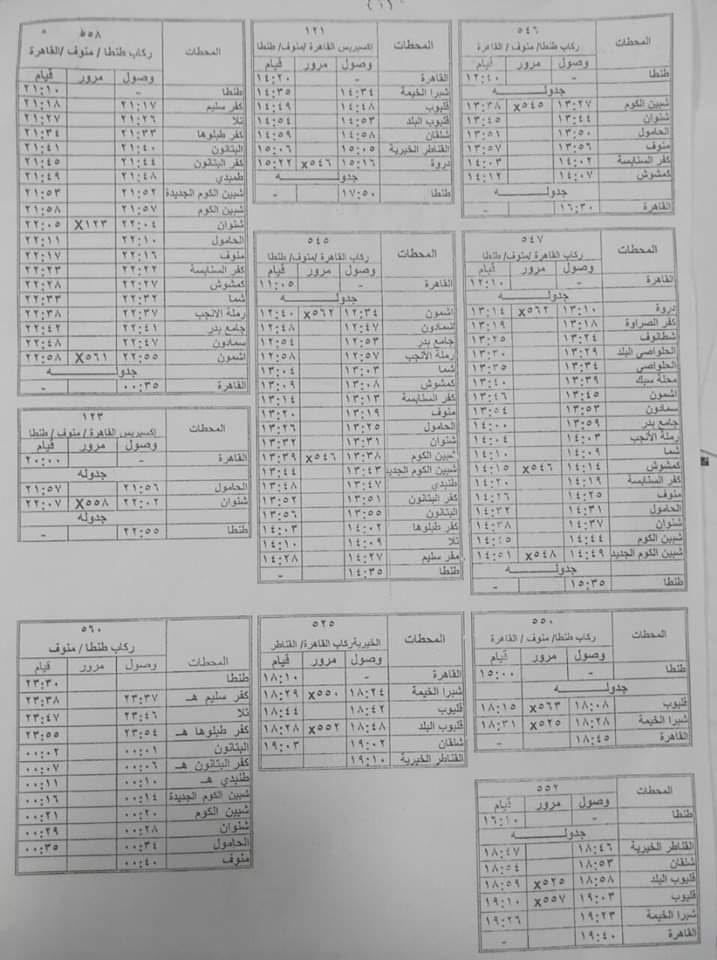 ٥٤٦
المحطات ركاب طنطا/ منوف / القاهرة
وصول مرور قيام
طنطا - ١٢:٤٠
جدولـــه
شبين الكوم ١٣:٢٧ ٥٤٥x ١٣:٣٨
شنوان ١٣:٤٤ ١٣:٤٥
الحامول ١٣:٥٠ ١٣:٥١
منوف ١٣:٥٦ ١٣:٥٧
كفر السنابسة ١٤:٠٢ ١٤:٠٣
كمشوش ١٤:٠٧ ١٤:١٢
جدولـــه
القاهرة ١٦:٣٠ -
١٢١
المحطات إكسبريس القاهرة /منوف/ طنطا
وصول مرور قيام
القاهرة - ١٤:٢٠
شبرا الخيمة ١٤:٣٤ ١٤:٣٥
قليوب ١٤:٤٨ ١٤:٤٩
قليوب البلد ١٤:٥٣ ١٤:٥٤
شلقان ١٤:٥٨ ١٤:٥٩
القناطر الخيرية ١٥:٠٥ ١٥:٠٦
دروة ١٥:١٦ ٥٤٦x ١٥:٢٢
جدولـــه
طنطا ١٧:٥٠ -
٥٥٨
المحطات ركاب طنطا / منوف /القاهرة
وصول مرور قيام
طنطا - ٢١:١٠
كفر سليم ٢١:١٧ ٢١:١٨
تلا ٢١:٢٦ ٢١:٢٧
كفر طبلوها ٢١:٣٣ ٢١:٣٤
البتانون ٢١:٤٠ ٢١:٤١
كفر البتانون ٢١:٤٤ ٢١:٤٥
طمبدي ٢١:٤٨ ٢١:٤٩
شبين الكوم الجديدة ٢١:٥٢ ٢١:٥٣
شبين الكوم ٢١:٥٧ ٢١:٥٨
شنوان ٢٢:٠٤ ١٢٣X ٢٢:٠٥
الحامول ٢٢:١٠ ٢٢:١١
منوف ٢٢:١٦ ٢٢:١٧
كفر السنابسة ٢٢:٢٢ ٢٢:٢٣
كمشوش ٢٢:٢٧ ٢٢:٢٨
شما ٢٢:٣٢ ٢٢:٣٣
رملة الأنجب ٢٢:٣٧ ٢٢:٣٨
جامع بدر ٢٢:٤١ ٢٢:٤٢
سمادون ٢٢:٤٧ ٢٢:٤٨
أشمون ٢٢:٥٥ ٥٦١X ٢٢:٥٨
جدولـــه
القاهرة ٠٠:٣٥ -
٥٤٧
المحطات ركاب القاهرة /منوف/ طنطا
وصول مرور قيام
القاهرة - ١٢:١٠
جدولـــه
دروة ١٣:١٠ ٥٦٢x ١٣:١٤
كفر الصراوة ١٣:١٨ ١٣:١٩
شطانوف ١٣:٢٤ ١٣:٢٥
الحلواصي البلد ١٣:٢٩ ١٣:٣٠
الحلواصي ١٣:٣٤ ١٣:٣٥
محلة سبك ١٣:٣٩ ١٣:٤٠
أشمون ١٣:٤٥ ١٣:٤٦
سمادون ١٣:٥٣ ١٣:٥٤
جامع بدر ١٣:٥٩ ١٤:٠٠
رملة الأنجب ١٤:٠٣ ١٤:٠٤
شما ١٤:٠٩ ١٤:١٠
كمشوش ١٤:١٤ ٥٤٦x ١٤:١٥
كفر السنابسة ١٤:١٩ ١٤:٢٠
منوف ١٤:٢٥ ١٤:٢٦
الحامول ١٤:٣١ ١٤:٣٢
شنوان ١٤:٣٧ ١٤:٣٨
شبين الكوم ١٤:٤٤ ١٤:٤٥
شبين الكوم الجديد ١٤:٤٩ ٥٤٨x ١٤:٥١
جدولـــه
طنطا ١٥:٣٥ -
٥٤٥
المحطات ركاب القاهرة /منوف/ طنطا
وصول مرور قيام
القاهرة - ١١:٠٥
جدولـــه
أشمون ١٢:٣٤ ٥٦٢x ١٢:٤٠
أشمادون ١٢:٤٧ ١٢:٤٨
جامع بدر ١٢:٥٣ ١٢:٥٤
رملة الأنجب ١٢:٥٧ ١٢:٥٨
شما ١٣:٠٣ ١٣:٠٤
كمشوش ١٣:٠٨ ١٣:٠٩
كفر السنابسة ١٣:١٣ ١٣:١٤
منوف ١٣:١٩ ١٣:٢٠
الحامول ١٣:٢٥ ١٣:٢٦
شنوان ١٣:٣١ ١٣:٣٢
شبين الكوم ١٣:٣٨ ٥٤٦x ١٣:٣٩
شبين الكوم الجديد ١٣:٤٣ ١٣:٤٤
طنبدي ١٣:٤٧ ١٣:٤٨
كفر البتانون ١٣:٥١ ١٣:٥٢
البتانون ١٣:٥٥ ١٣:٥٦
كفر طبلوها ١٤:٠٢ ١٤:٠٣
تلا ١٤:٠٩ ١٤:١٠
مقر سليم ١٤:٢٧ ١٤:٢٨
طنطا ١٤:٣٥ -
١٢٣
المحطات إكسبريس القاهرة / منوف / طنطا
وصول مرور قيام
القاهرة - ٢٠:٠٠
جدوله
الحامول ٢١:٥٦ ٢١:٥٧
شنوان ٢٢:٠٢ ٥٥٨X ٢٢:٠٧
جدوله
طنطا ٢٢:٥٥ -
٥٥٠
المحطات ركاب طنطا/ منوف / القاهرة
وصول مرور قيام
طنطا - ١٥:٠٠
جدولـــه
قليوب ١٨:٠٨ ٥٦٣x ١٨:١٥
شبرا الخيمة ١٨:٢٨ ٥٢٥x ١٨:٣١
القاهرة ١٨:٤٥ -
٥٢٥
المحطات الخيرية ركاب القاهرة/ القناطر
وصول مرور قيام
القاهرة - ١٨:١٠
شبرا الخيمة ١٨:٢٤ ٥٥٠x ١٨:٢٩
قليوب ١٨:٤٢ ١٨:٤٤
قليوب البلد ١٨:٤٨ ٥٥٢x ١٨:٢٨
شلقان ١٩:٠٢ ١٩:٠٣
القناطر الخيرية ١٩:١٠
٥٦٠
المحطات ركاب طنطا / منوف
وصول مرور قيام
طنطا ٢٣:٣٠
كفر سليم هـ ٢٣:٣٧ ٢٣:٣٨
تلا ٢٣:٤٦ ٢٣:٤٧
كفر طبلوها هـ ٢٣:٥٤ ٢٣:٥٥
البتانون ٠٠:٠١ ٠٠:٠٢
كفر البتانون هـ ٠٠:٠٦ ٠٠:٠٧
طنبدي هـ ٠٠:١٠ ٠٠:١١
شبين الكوم الجديدة ٠٠:١٤ ٠٠:١٦
شبين الكوم ٠٠:٢٠ ٠٠:٢١
شنوان ٠٠:٢٨ ٠٠:٢٩
الحامول ٠٠:٣٤ ٠٠:٣٥
منوف ٠٠:٤٠
٥٥٢
المحطات وصول مرور قيام
طنطا - ١٦:١٠
جدولـــه
القناطر الخيرية ١٨:٤٦ ١٨:٤٧
شلقان ١٨:٥٣ ١٨:٥٤
قليوب البلد ١٨:٥٨ ٥٢٥x ١٨:٥٩
قليوب ١٩:٠٣ ٥٥٧x ١٩:١٠
شبرا الخيمة ١٩:٢٣ ١٩:٢٦
القاهرة ١٩:٤٠ -